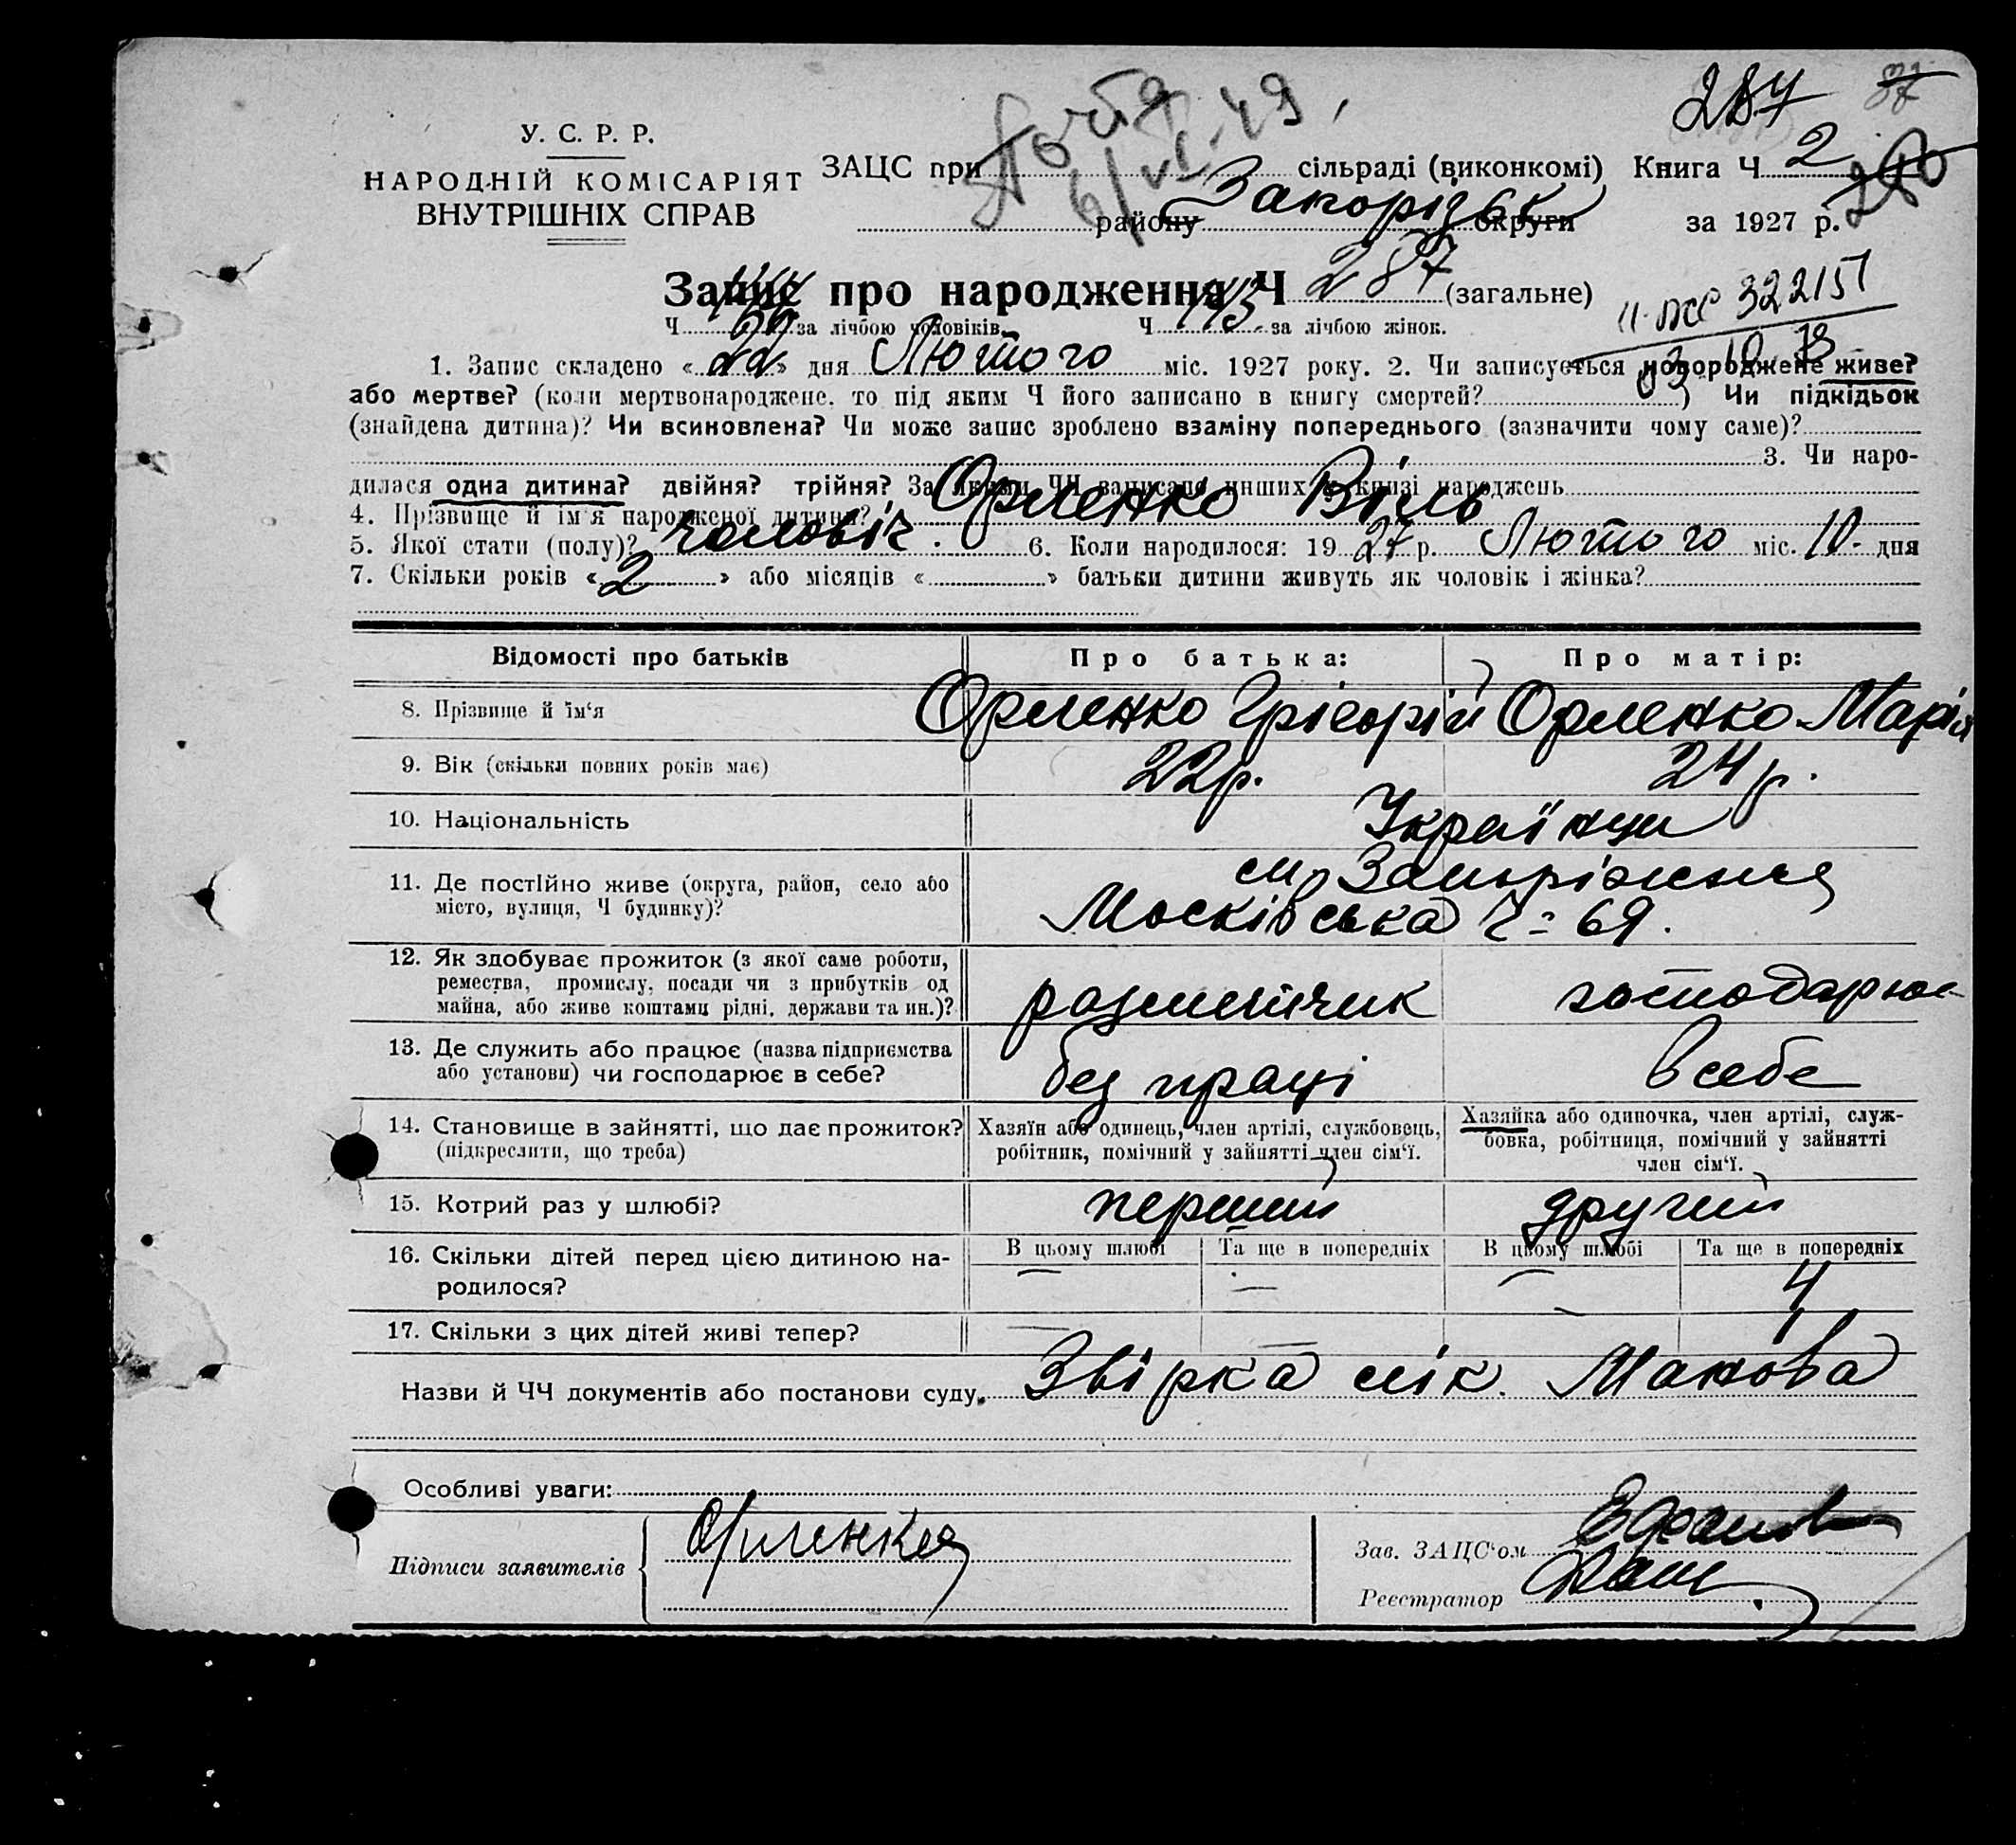 287
У. С. Р. Р.
НАРОДНІЙ КОМІСАРІЯТ
ВНУТРІШНІХ СПРАВ
ЗАЦС при сільраді (виконкомі) Книга Ч 2
району Запоріжж округи за 1927 р. 280
Запис про народження Ч 287 (загальне)
Ч за лічбою чоловіків Ч 143 за лічбою жінок.
II-ЖС 322151
1. Запис складено «22» дня Лютого міс. 1927 року. 2. Чи записується новороджене живе?
або мертве? (коли мертвонароджене, то під яким Ч його записано в книгу смертей?) Чи підкідьок
(знайдена дитина)? Чи всиновлена? Чи може запис зроблено взаміну попереднього (зазначити чому саме)?
3. Чи наро-
дилася одна дитина? двійня? трійня? За якими ЧЧ записано инших у книзі народжень
4. Прізвище й ім'я народженої дитини? Орленко Віль
5. Якої стати (полу)? чоловіч. 6. Коли народилося: 1927 р. Лютого міс. 10 дня
7. Скільки років «2» або місяців « » батьки дитини живуть як чоловік і жінка?
Відомості про батьків Про батька: Про матір:
8. Прізвище й ім'я Орленко Грігорій Орленко Марія
9. Вік (скільки повних років має) 22 р. 24 р.
10. Національність Українци
11. Де постійно живе (округа, район, село або м. Запоріжжя
місто, вулиця, Ч будинку)? Московська Ч = 69.
12. Як здобуває прожиток (з якої саме роботи,
ремества, промислу, посади чи з прибутків од
майна, або живе коштами рідні, держави та ин.)? розметчик господарює
13. Де служить або працює (назва підприємства
або установи) чи господарює в себе? без праці в себе
14. Становище в зайнятті, що дає прожиток? Хазяїн або одинець, член артілі, службовець, Хазяйка або одиночка, член артілі, служ-
(підкреслити, що треба) робітник, помічний у зайнятті член сім'ї. бовка, робітниця, помічний у зайнятті
член сім'ї.
15. Котрий раз у шлюбі? перший другий
16. Скільки дітей перед цією дитиною на- В цьому шлюбі Та ще в попередніх В цьому шлюбі Та ще в попередніх
родилося? — — — 4
17. Скільки з цих дітей живі тепер? — — — 1
Назви й ЧЧ документів або постанови суду. Звірка лік. Манова
Особливі уваги:
Підписи заявителів Орленко
Зав. ЗАЦС'ом
Реєстратор